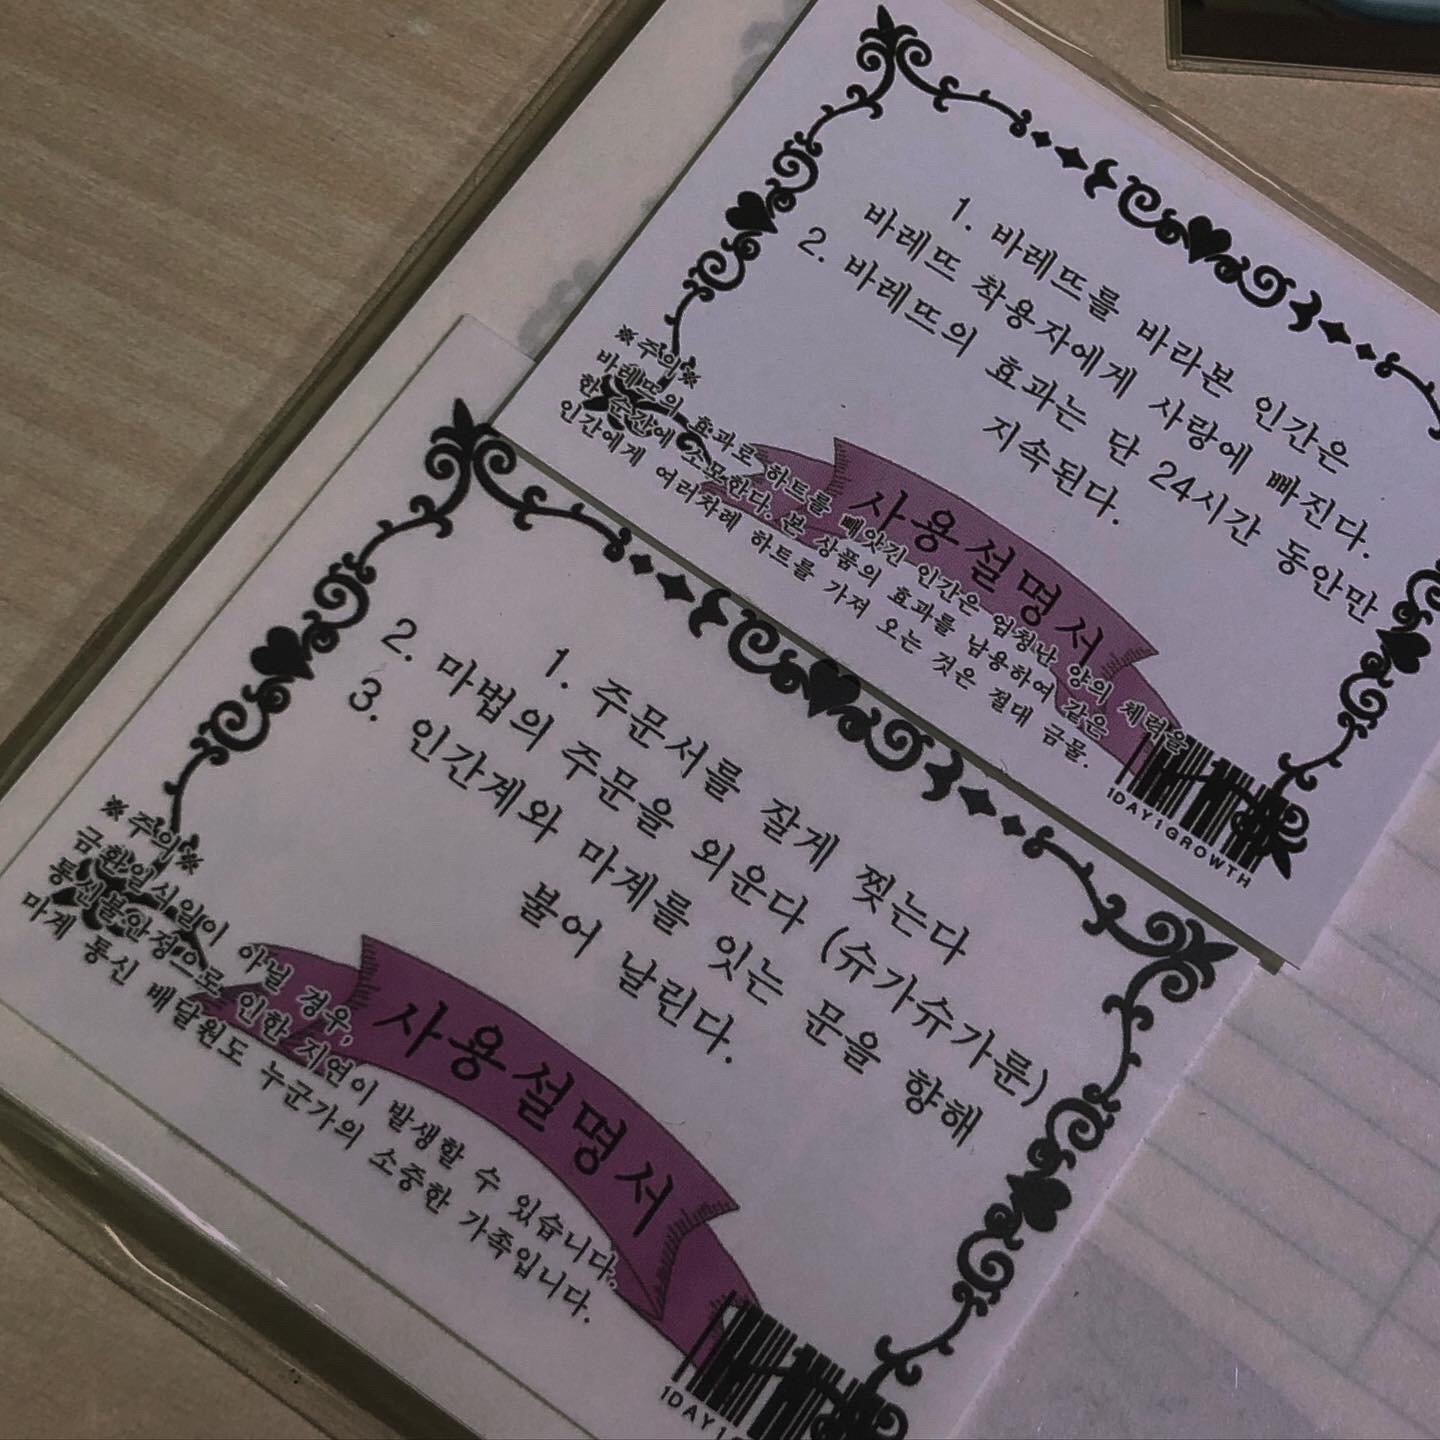 1. 바레뜨를 바라본 인간은
바레뜨 착용자에게 사랑에 빠진다.
2. 바레뜨의 효과는 단 24시간 동안만
지속된다.
사용설명서
※주의※
바레뜨의 효과로 하트를 빼앗긴 인간은 엄청난 양의 체력을
한 순간에 소모한다. 본 상품의 효과를 남용하여 같은
인간에게 여러차례 하트를 가져 오는 것은 절대 금물.
1DAY1GROWTH
1. 주문서를 잘게 찢는다
2. 마법의 주문을 외운다 (슈가슈가룬)
3. 인간계와 마계를 잇는 문을 향해
불어 날린다.
사용설명서
※주의※
금환일식일이 아닐 경우,
통신불안정으로 인한 지연이 발생할 수 있습니다.
마계 통신 배달원도 누군가의 소중한 가족입니다.